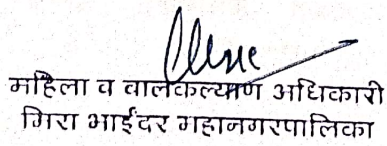 महिला व बालकल्याण अधिकारी
मिरा भाईंदर महानगरपालिका